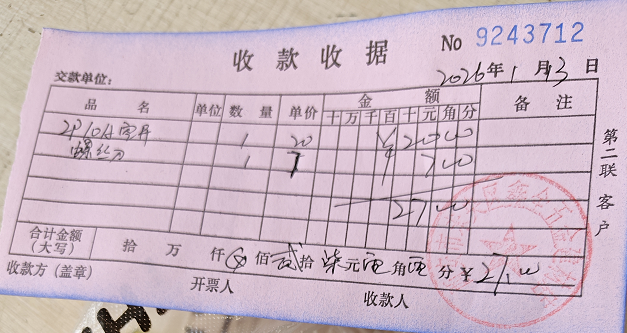 收款收据 No 9243712
交款单位: 2026年1月13日
品 名 单位 数 量 单价 金 额 备 注
十 万 千 百 十 元 角 分
2P10A空开 1 20 ¥ 20 00
螺丝刀 1 7 ¥ 7 00
27 00
合计金额(大写) 拾 万 仟 ⊗ 佰 贰 拾 柒 元 零 角 零 分 ¥ 27.00
收款方(盖章) 开票人 收款人
第二联 客户